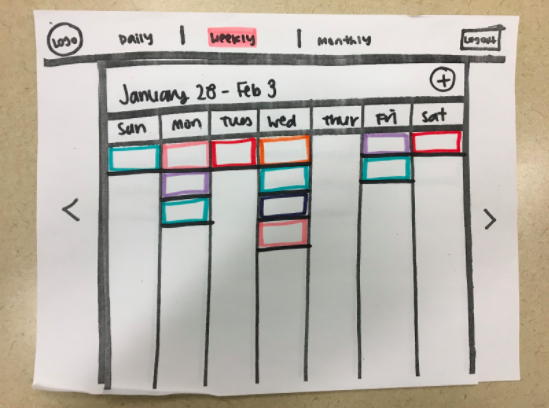 LOGO Daily | Weekly | Monthly Logout
+
January 28 - Feb 3
Sun Mon Tues Wed Thur Fri Sat
< >